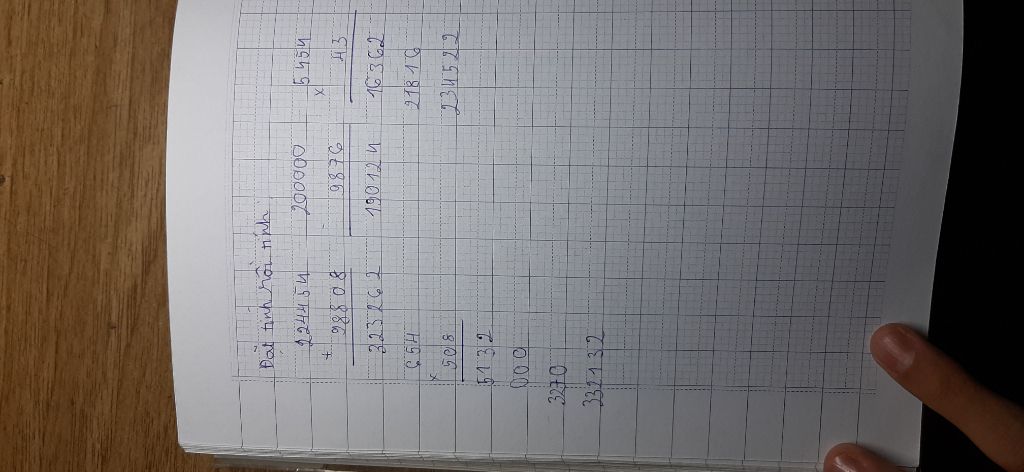 Đặt tính rồi tính
224454 200000 5454
+ - x
98808 9876 43
323262 190124 16362
654 21816
x
508 234522
5132
000
3270
332132